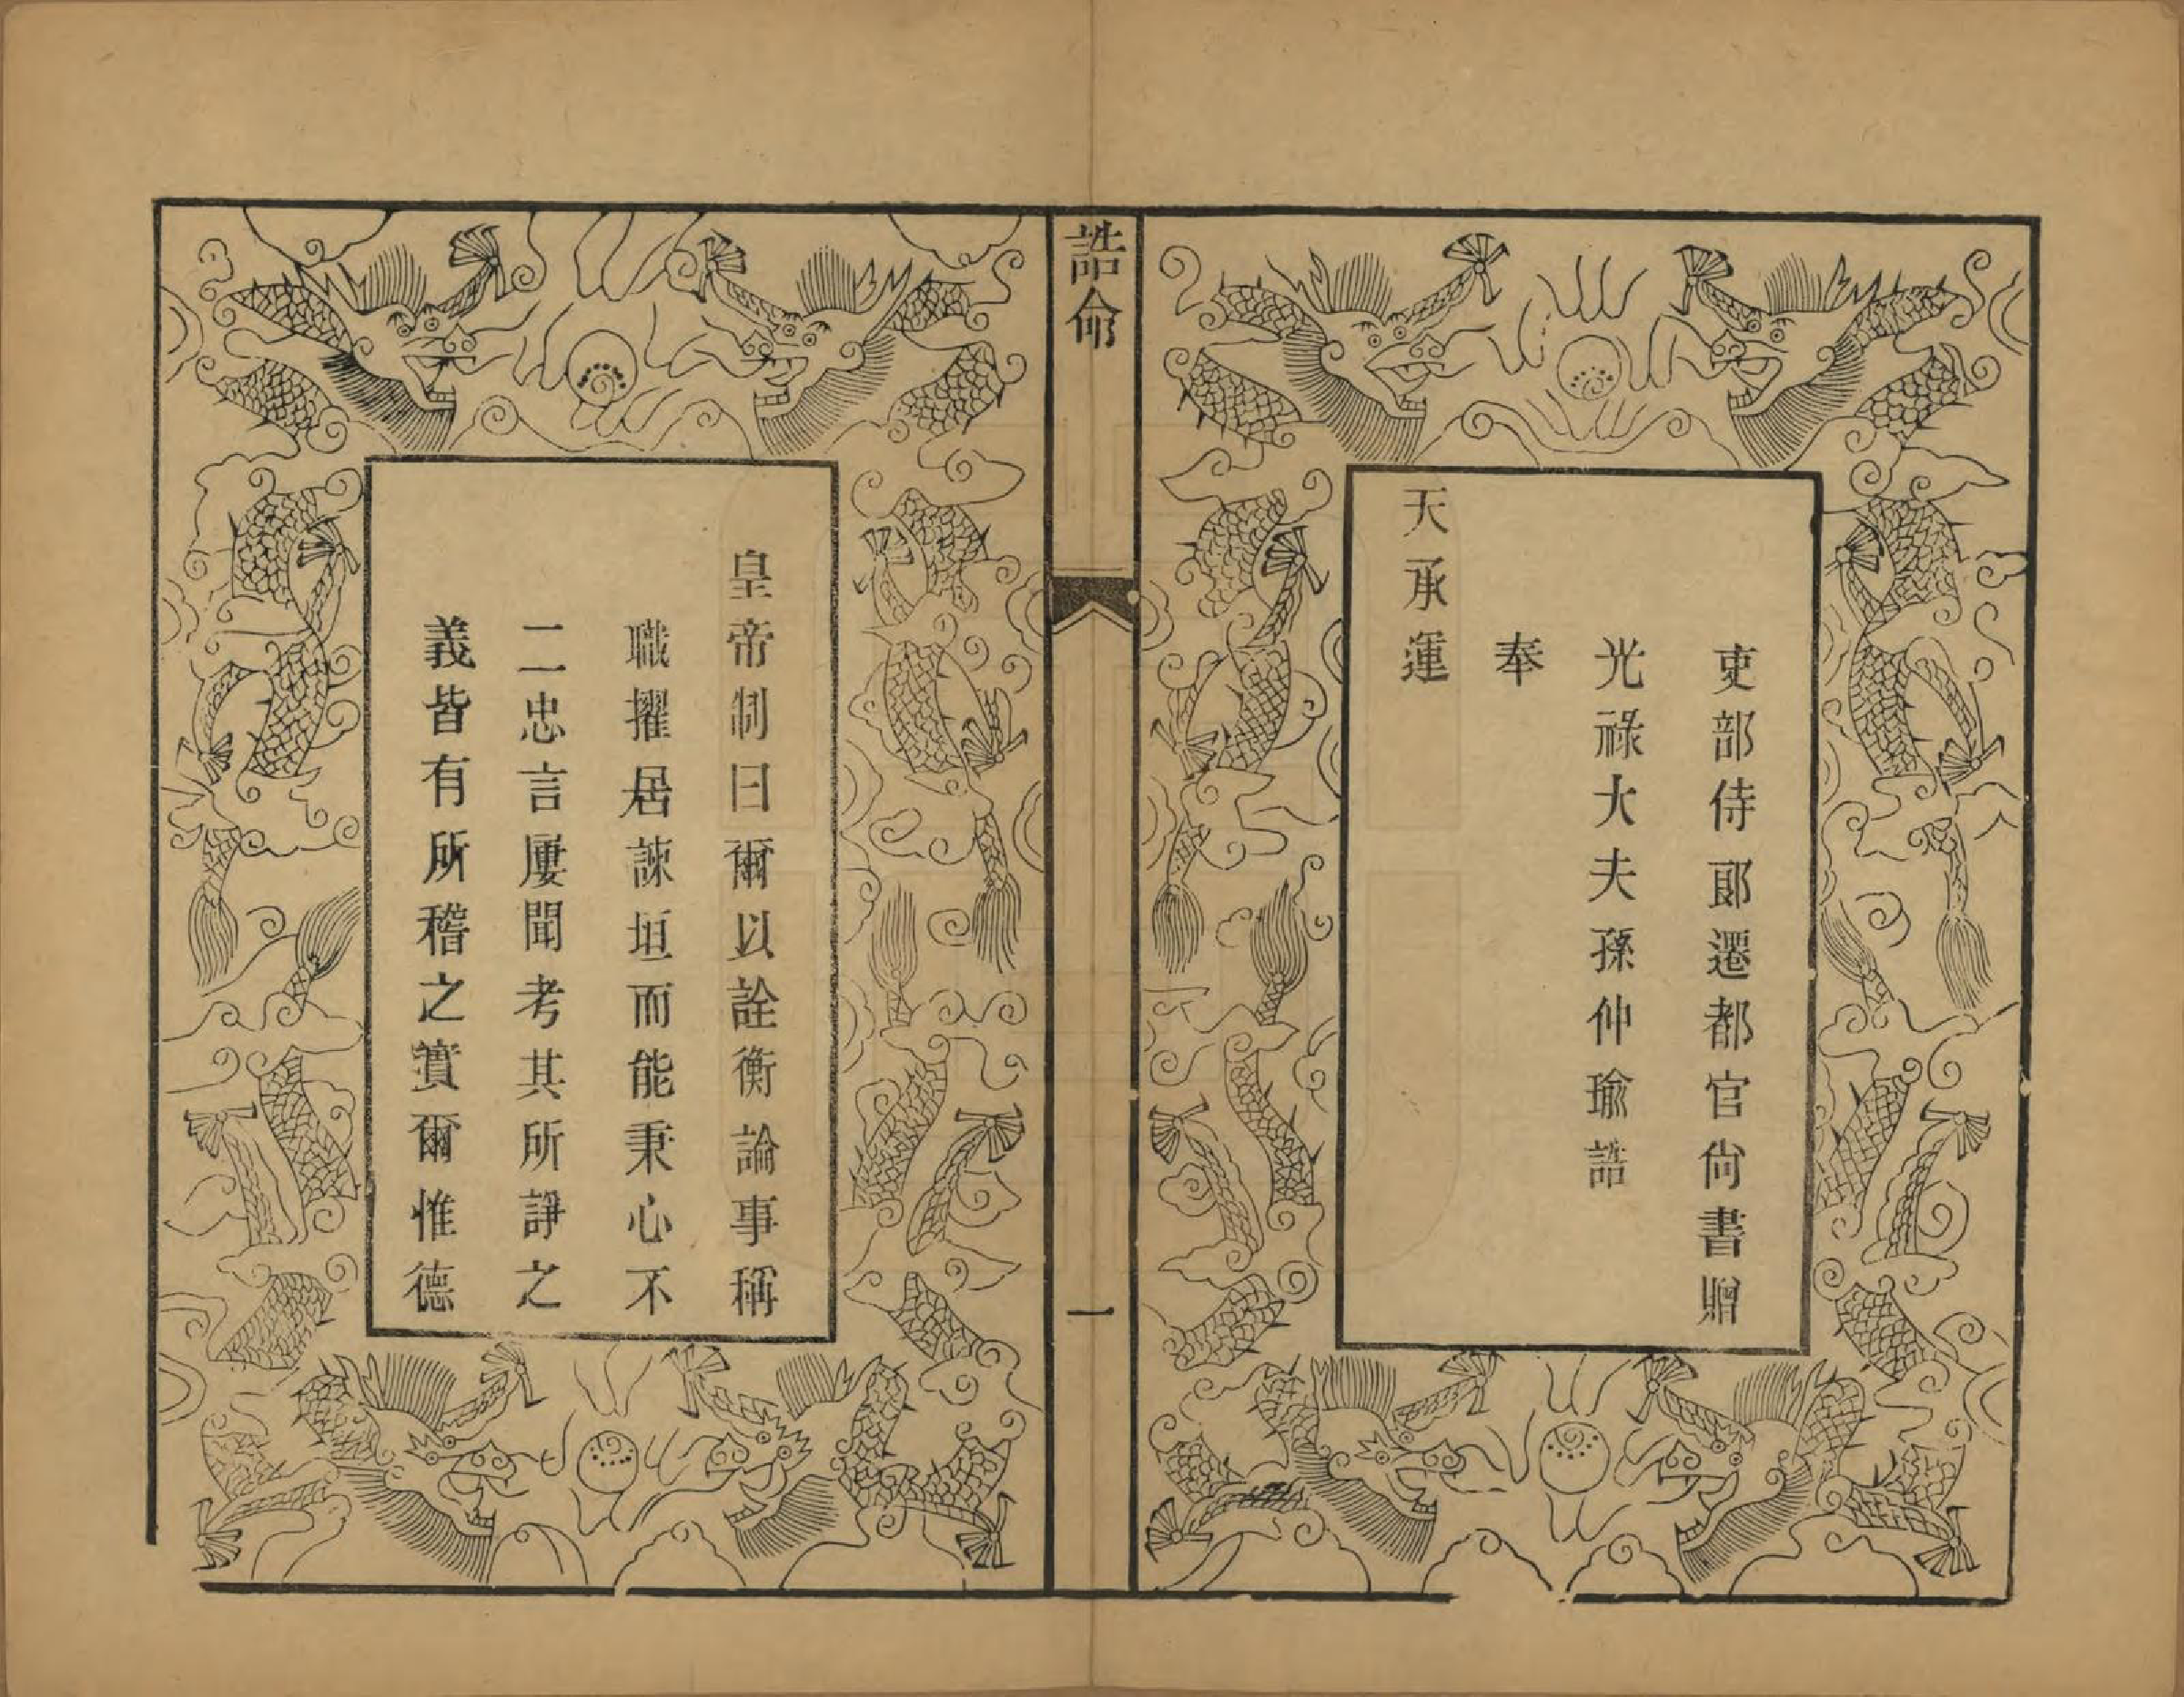 吏部侍郞遷都官尙書贈
光祿大夫孫仲瑜誥
奉
天承運
誥命
一
皇帝制曰爾以詮衡論事稱
職擢居諫垣而能秉心不
二忠言屢聞考其所諍之
義皆有所稽之實爾惟德